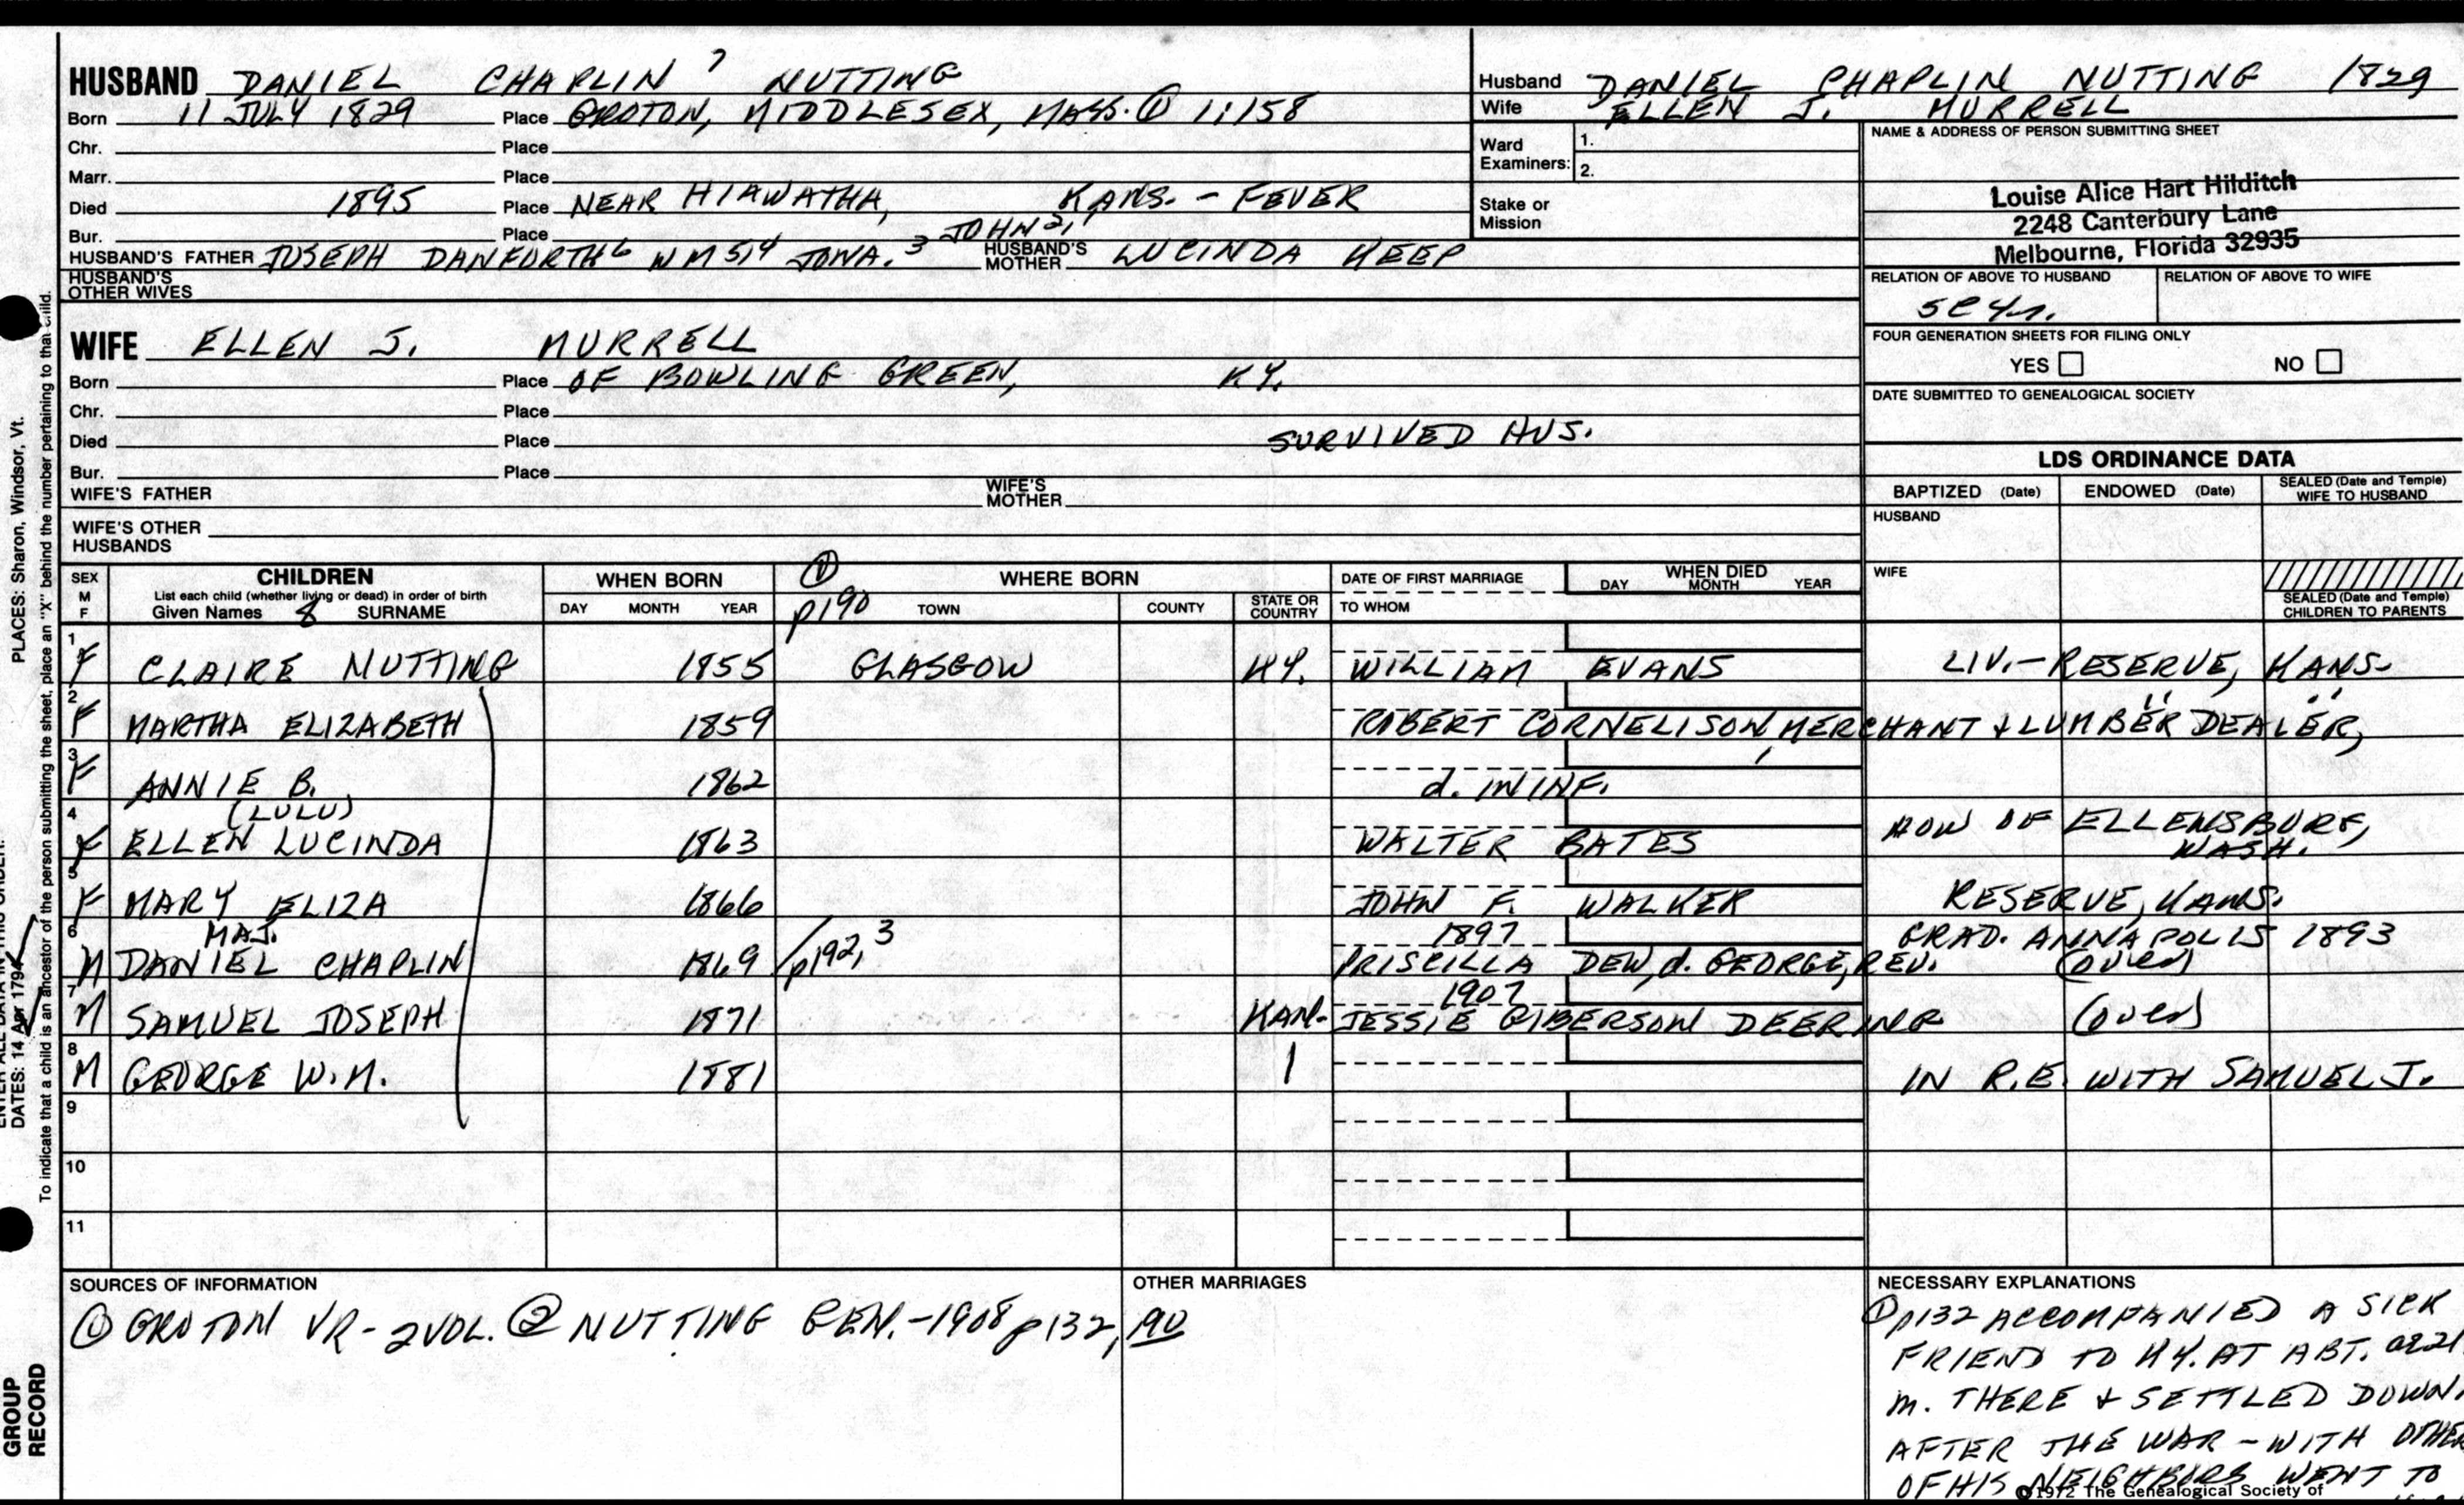 HUSBAND DANIEL CHAPLIN 7 NUTTING
Born 11 JULY 1829 Place GROTON, MIDDLESEX, MASS. ① 1:158
Chr. Place
Marr. Place
Died 1895 Place NEAR HIAWATHA, KANS. - FEVER
Bur. Place JOHN 2, 1
HUSBAND'S FATHER JOSEPH DANFORTH 6 WM 5,4 JONA. 3 HUSBAND'S MOTHER LUCINDA KEEP
HUSBAND'S OTHER WIVES
Husband DANIEL CHAPLIN NUTTING 1829
Wife ELLEN J. MURRELL
Ward Examiners: 1.
2.
Stake or Mission
NAME & ADDRESS OF PERSON SUBMITTING SHEET
Louise Alice Hart Hilditch
2248 Canterbury Lane
Melbourne, Florida 32935
RELATION OF ABOVE TO HUSBAND RELATION OF ABOVE TO WIFE
FOUR GENERATION SHEETS FOR FILING ONLY
YES NO
DATE SUBMITTED TO GENEALOGICAL SOCIETY
WIFE ELLEN J. MURRELL
Born Place OF BOWLING GREEN, KY.
Chr. Place
Died Place SURVIVED HUS.
Bur. Place
WIFE'S FATHER WIFE'S MOTHER
WIFE'S OTHER HUSBANDS
LDS ORDINANCE DATA
BAPTIZED (Date) ENDOWED (Date) SEALED (Date and Temple) WIFE TO HUSBAND
HUSBAND
WIFE
SEALED (Date and Temple) CHILDREN TO PARENTS
SEX M F
CHILDREN
List each child (whether living or dead) in order of birth
Given Names 8 SURNAME
WHEN BORN
DAY MONTH YEAR
① p190
WHERE BORN
TOWN COUNTY STATE OR COUNTRY
DATE OF FIRST MARRIAGE
TO WHOM
WHEN DIED
DAY MONTH YEAR
1 F CLAIRE NUTTING 1855 GLASGOW KY. WILLIAM EVANS LIV. - RESERVE, KANS.
2 F MARTHA ELIZABETH 1859 ROBERT CORNELISON, MERCHANT & LUMBER DEALER, " "
3 F ANNIE B. 1862 d. IN INF.
4 F ELLEN LUCINDA (LULU) 1863 WALTER BATES NOW OF ELLENSBURG, WASH.
5 F MARY ELIZA 1866 JOHN F. WALKER RESERVE, KANS.
6 M MAJ. DANIEL CHAPLIN 1869 p192, 3 1897 PRISCILLA DEW, d. GEORGE, REV. GRAD. ANNAPOLIS 1893 (over)
7 M SAMUEL JOSEPH 1871 KAN. 1907 JESSIE GIBERSON DEERING (over)
8 M GEORGE W.M. 1881 IN R.E. WITH SAMUEL J.
9
10
11
SOURCES OF INFORMATION
① GROTON VR - 2 VOL. ② NUTTING GEN. - 1908 p132, 190
OTHER MARRIAGES
NECESSARY EXPLANATIONS
① p132 ACCOMPANIED A SICK
FRIEND TO KY. AT ABT. ae 21
m. THERE & SETTLED DOWN.
AFTER THE WAR - WITH OTHER
OF HIS NEIGHBORS WENT TO
©1972 The Genealogical Society of
PLACES: Sharon, Windsor, Vt.
DATES: 14 Apr 1794
To indicate that a child is an ancestor of the person submitting the sheet, place an "X" behind the number pertaining to that child.
GROUP
RECORD